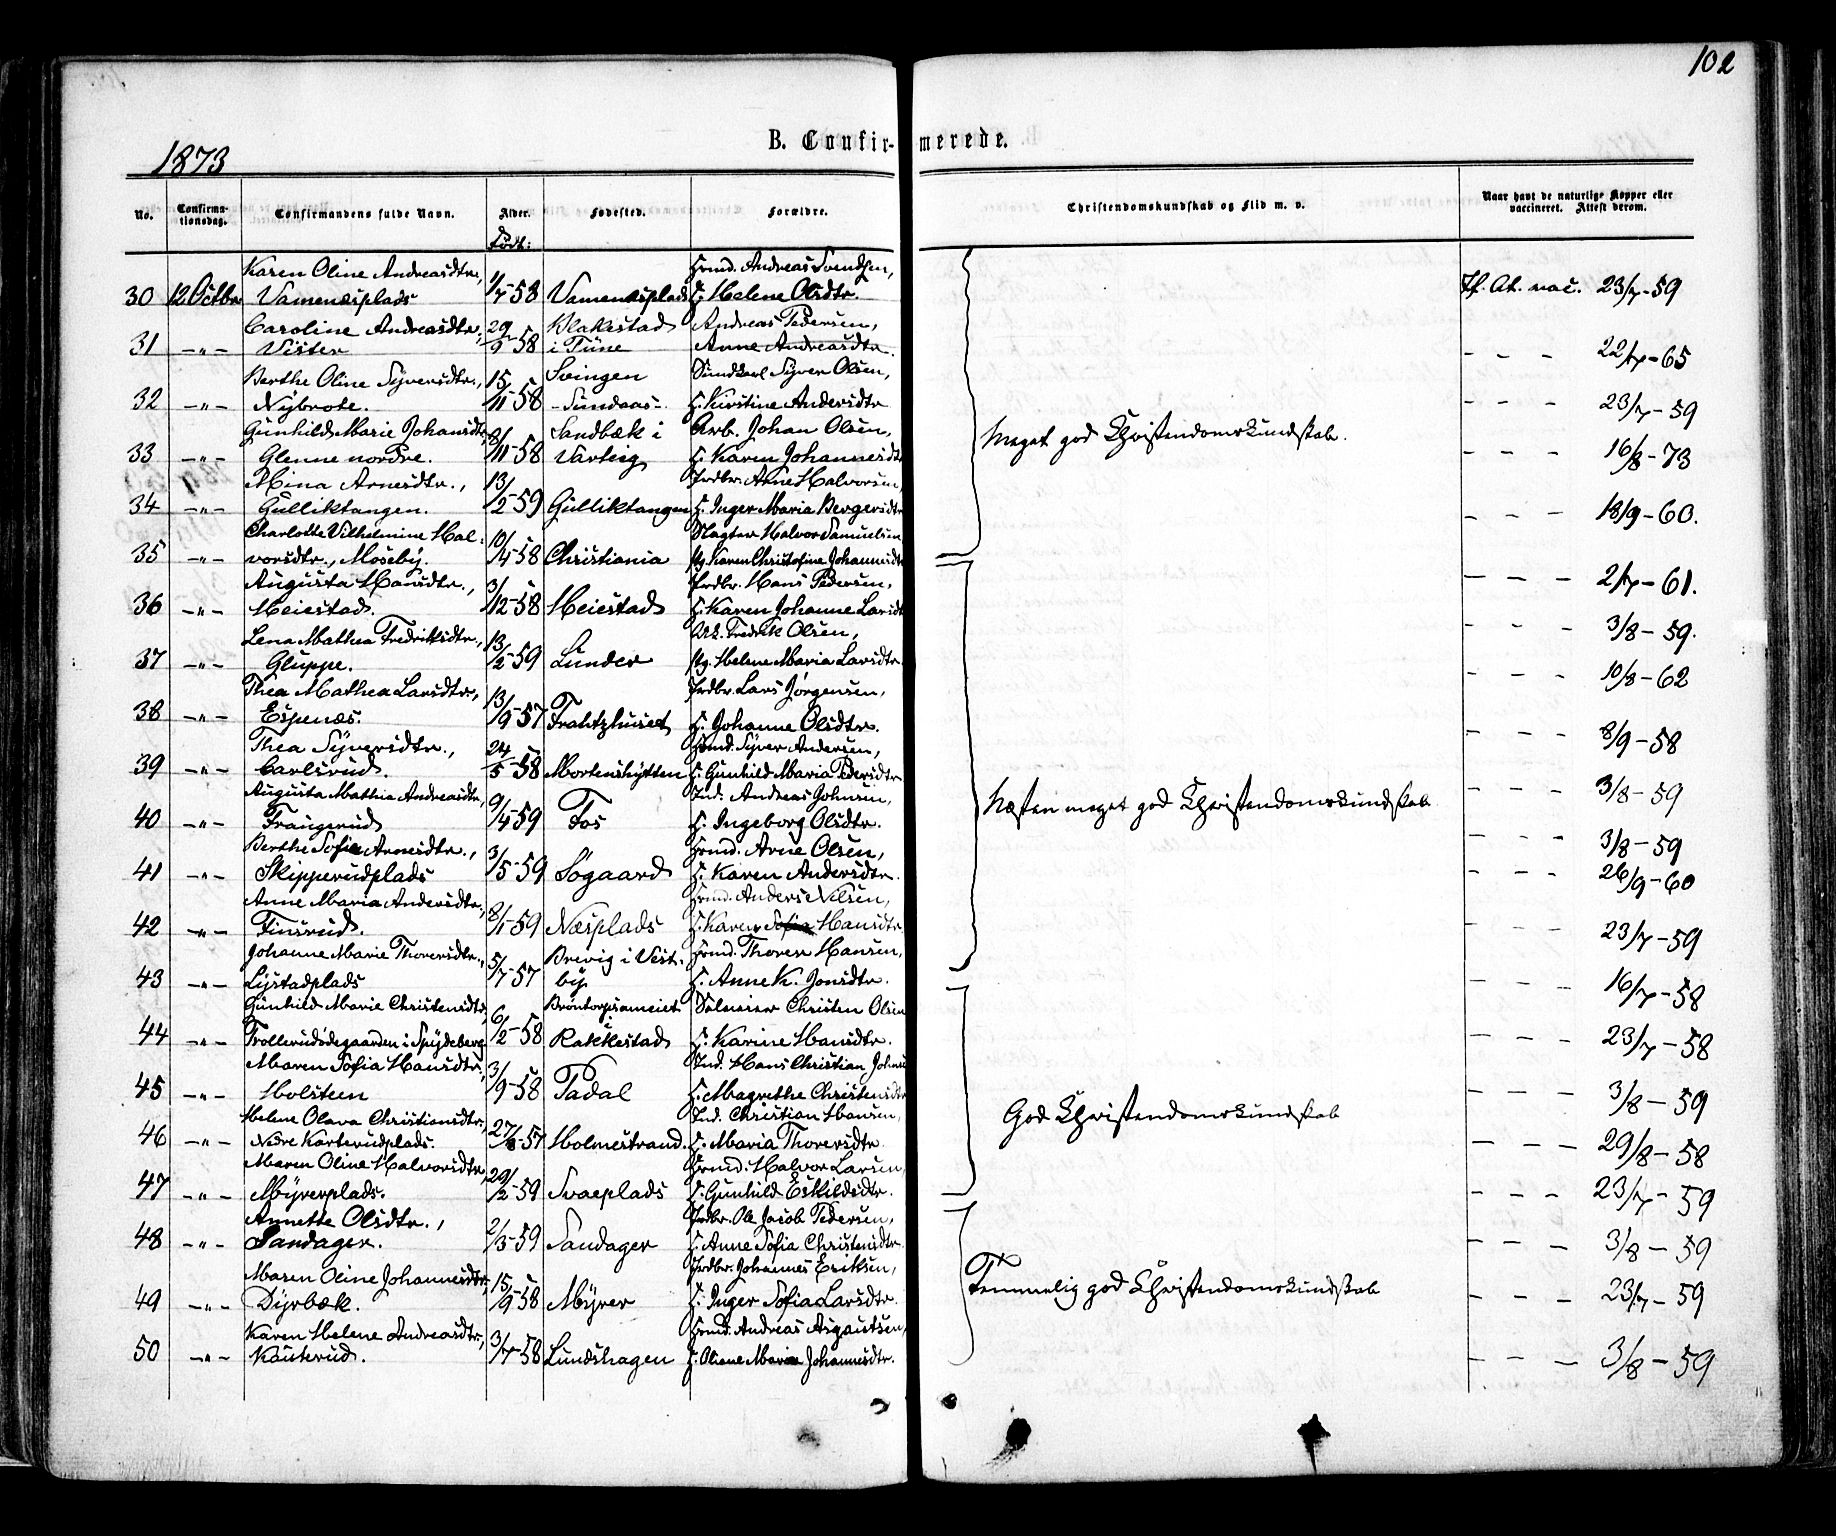 102
B. Confirmerede.
1873
No. Confirmationsdag. Confirmandens fulde Navn. Alder. Fødested. Forældre. Christendomskundskab og Flid m. v. Naar havt de naturlige Kopper eller vaccineret. Attest derom.
Født:
Karen Oline Andreasdtr., Hmd. Andreas Svendsen,
30 12 Octbr Vamenæsplads 1/7-58 Vamenæsplads H. Helene Olsdtr. If. At. vac. 23/7-59
Caroline Andreasdtr., 29 Blakestad Andreas Pedersen,
31 -"- Vister 9-58 i Tune Anne Andreasdtr. - - - 22/7-65
Berthe Oline Syversdtr., 15 Svingen Sundkarl Syver Olsen,
32 -"- Nybrote. /11-58 -Sundaas-. H. Kirstine Andersdtr - - - 23/7-59
Gunhild Marie Johansdtr, 8/ Sandbæk i Arb. Johan Olsen,
33 -"- Glenne nordre. /11-58 Varteig H. Karen Johannesdtr Meget god Christendomskundskab. - - - 16/8-73
Mina Arnesdtr., 13/ Grdbr. Arne Halvorsen,
34 -"- Gulliktangen. /2-59 Gulliktangen H. Inger Maria Bergersdtr - - - 18/9-60.
Charlotte Vilhelmine Hal- 10/ Slagter Halvor Samuelsen
35 -"- vorsdtr., Moseby. /4-58 Christiania Pg. Karen Christofine Johannesdtr - - - 2/7-61.
Augusta Hansdtr., 3/ Grdbr. Hans Pedersen,
36 -"- Heiestad. /12-58 Heiestad H. Karen Johanne Larsdtr - - - 3/8-59.
Lena Mathea Fredriksdtr., 13/ Fredrik Olsen,
37 -"- Gluppe. /2-59 Lunder Pg. Helene Maria Larsdtr. - - - 10/8-62
Thea Mathea Larsdtr., 13/ Grdbr. Lars Jørgensen,
38 -"- Espenæs. /9-57 Frahtzhuset H. Johanne Olsdtr. - - - 8/9-58
Thea Syversdtr., 24 Hmd. Syver Andersen,
39 -"- Carlsrud. 5-58 Mortenshytten H. Gunhild Maria Pedersdtr - - - 3/8-59
Augusta Mathea Andreasdtr, 9/ Ind. Andreas Johnsen,
40 -"- Frangerud /4-59 Fos H. Ingeborg Olsdtr. Næsten meget god Christendomskundskab - - - 3/8-59
Berthe Sofie Arnesdtr., 3/ Hmd. Arne Olsen,
41 -"- Skipperudplads /5-59 Søgaard H. Karen Andersdtr. - - - 26/9-60
Anne Maria Andersdtr., 8/ Hmd. Anders Nilsen,
42 -"- Finsrud. /1-59 Næsplads H. Karen Sofia Hansdtr - - - 23/7-59
Johanne Marie Thorersdtr., 5/ Brevig i Vest- Hmd. Thorer Hansen,
43 -"- Lystadplads /7-57 by. H. Anne K. Jonsdtr. - - - 16/7-58
Gunhild Marie Christensdtr, 6/ Brøntorpsameiet Salmager Christen Olsen
44 -"- Trollerudødegaarden i Spydeberg /2-58 i Rakkestad H. Karine Hansdtr. - - - 23/7-58
Maren Sofia Hansdtr., 3/ Ind. Hans Christian Johns
45 -"- Holsteen /9-58 Tadal H. Magrethe Christensdtr - - - 3/8-59
Helene Olava Christiansdtr, 27/ Ind. Christian Hansen,
46 -"- Nedre Karterudplads. /8-57 Holmestrand. H. Maria Thorersdtr. God Christendomskundskab - - - 29/8-58
Maren Oline Halvorsdtr, 29/ Hmd. Halvor Larsen,
47 -"- Myrerplads. /2-59 Svaeplads H. Gunhild Eskildsdtr. - - - 23/7-59
Annette Olsdtr., 2/ Grdbr. Ole Jacob Pedersen,
48 -"- Sandager. /3-59 Sandager H. Anne Sofia Christensdtr. - - - 3/8-59
Maren Oline Johannesdtr, 15/ Grdbr. Johannes Eriksen,
49 -"- Dyrbæk. 9-58 Myrer H. Inger Sofia Larsdtr. Temmelig god Christendomskundskab - - - 23/7-59
Karen Helene Andreasdtr., 3/ Hmd. Andreas Asgautsen,
50 -"- Kauterud. /7-58 Lundshagen H. Oliane Maria Johannesdtr. - - - 3/8-59